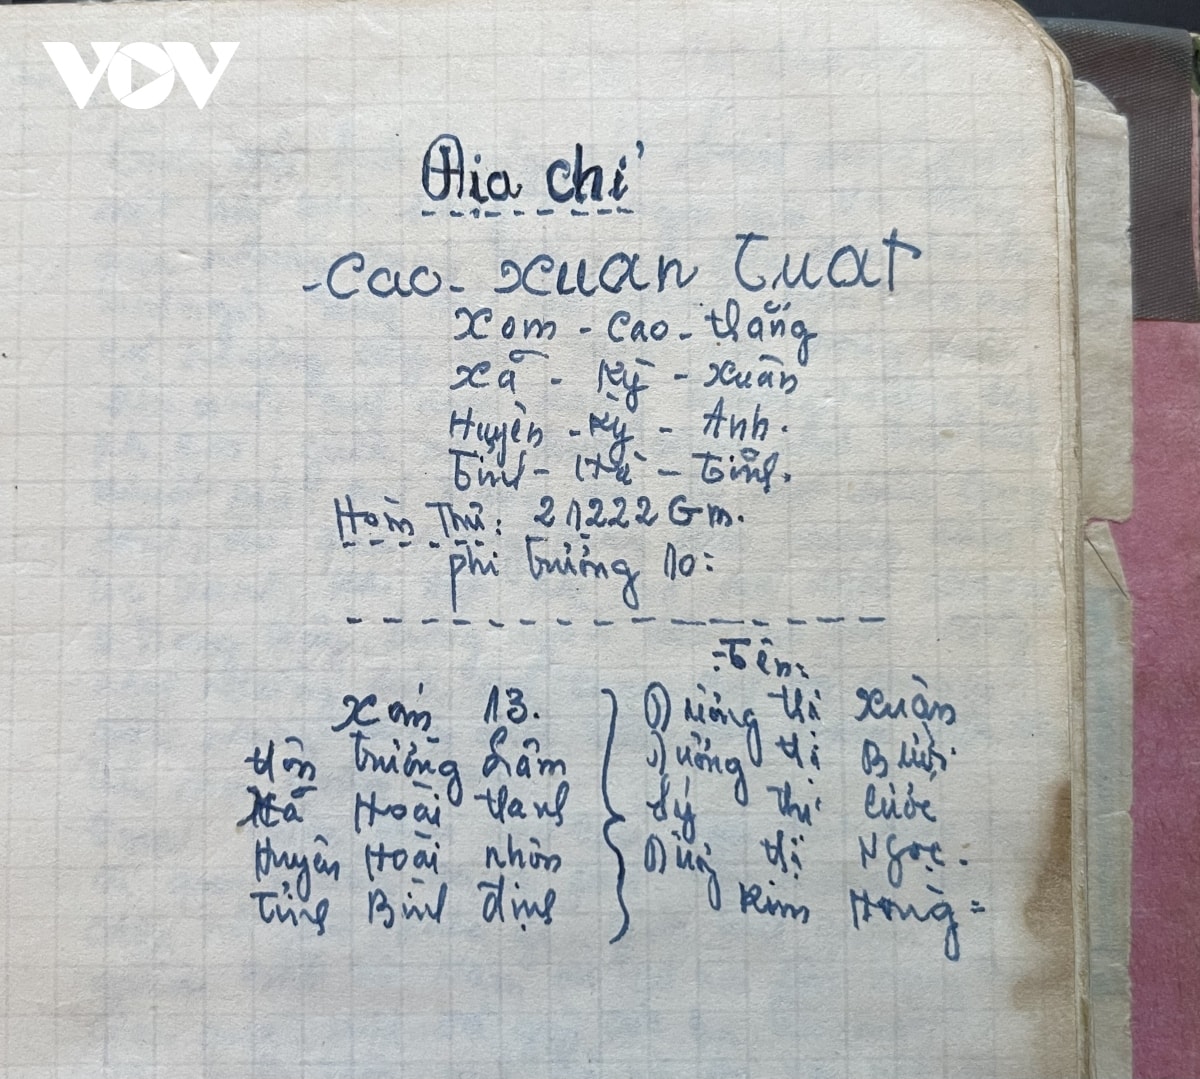 VOV
Địa chỉ
- Cao - Xuan Tuat
Xom - Cao - thắng
Xã - Kỳ - Xuân
Huyện - Kỳ - Anh.
Tỉnh - Hà - Tĩnh.
Hòm Thư: 21222 Gm.
phi trường 10:
- Tên:
Xóm 13.
thôn trường Lâm
Xã Hoài thanh
Huyện Hoài nhơn
Tỉnh Bình định
Dương thị Xuân
Dương thị Bưởi
Lý thị cước
Dương thị Ngọc.
Kim Hoàng =